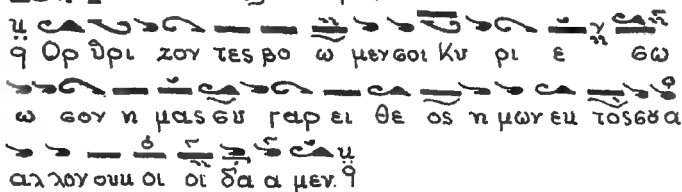 Ορ θρι ζον τες βο ω μεν σοι Κυ ρι ε σω
ω σον η μας συ γαρ ει Θε ος η μων εκ τος σου α
αλ λον ουκ οι οι δα α μεν.